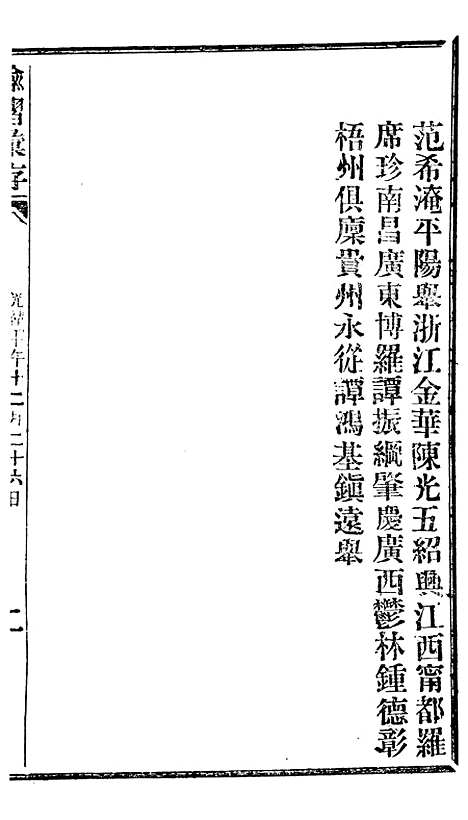 范希淹平陽舉浙江金華陳光五紹興江西甯都羅
席珍南昌廣東博羅譚振綱肇慶廣西鬱林鍾德彰
梧州俱廩貴州永從譚鴻基鎭遠舉
諭摺彙存
光緒年十二月二十六日
二